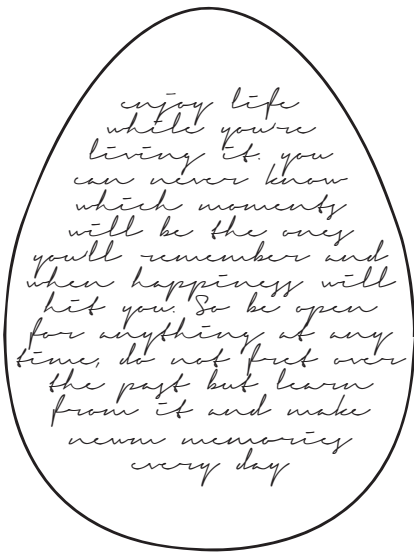 enjoy life
while you're
living it. you
can never know
which moments
will be the ones
you'll remember and
when happiness will
hit you. So be open
for anything at any
time, do not fret over
the past but learn
from it and make
newm memories
every day